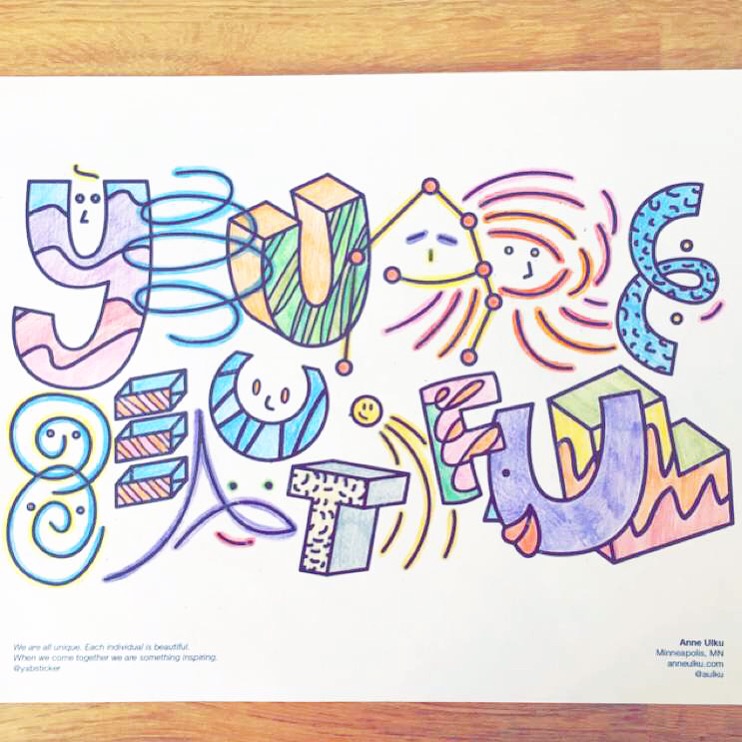 YOU ARE
BEAUTIFUL
We are all unique. Each individual is beautiful.
When we come together we are something inspiring.
@yabsticker
Anne Ulku
Minneapolis, MN
anneulku.com
@aulku